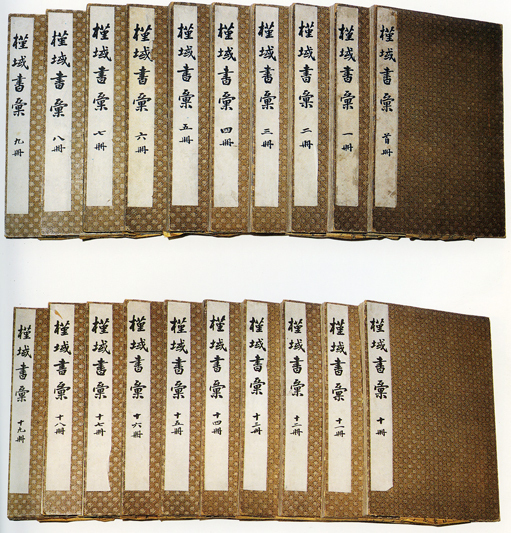 槿域書彙 首冊
槿域書彙 一冊
槿域書彙 二冊
槿域書彙 三冊
槿域書彙 四冊
槿域書彙 五冊
槿域書彙 六冊
槿域書彙 七冊
槿域書彙 八冊
槿域書彙 九冊
槿域書彙 十冊
槿域書彙 十一冊
槿域書彙 十二冊
槿域書彙 十三冊
槿域書彙 十四冊
槿域書彙 十五冊
槿域書彙 十六冊
槿域書彙 十七冊
槿域書彙 十八冊
槿域書彙 十九冊